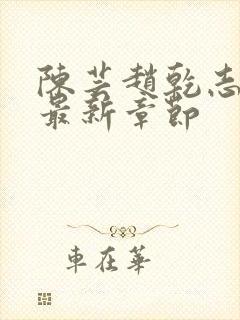 陳芸趙乾志
最新章節
車在華